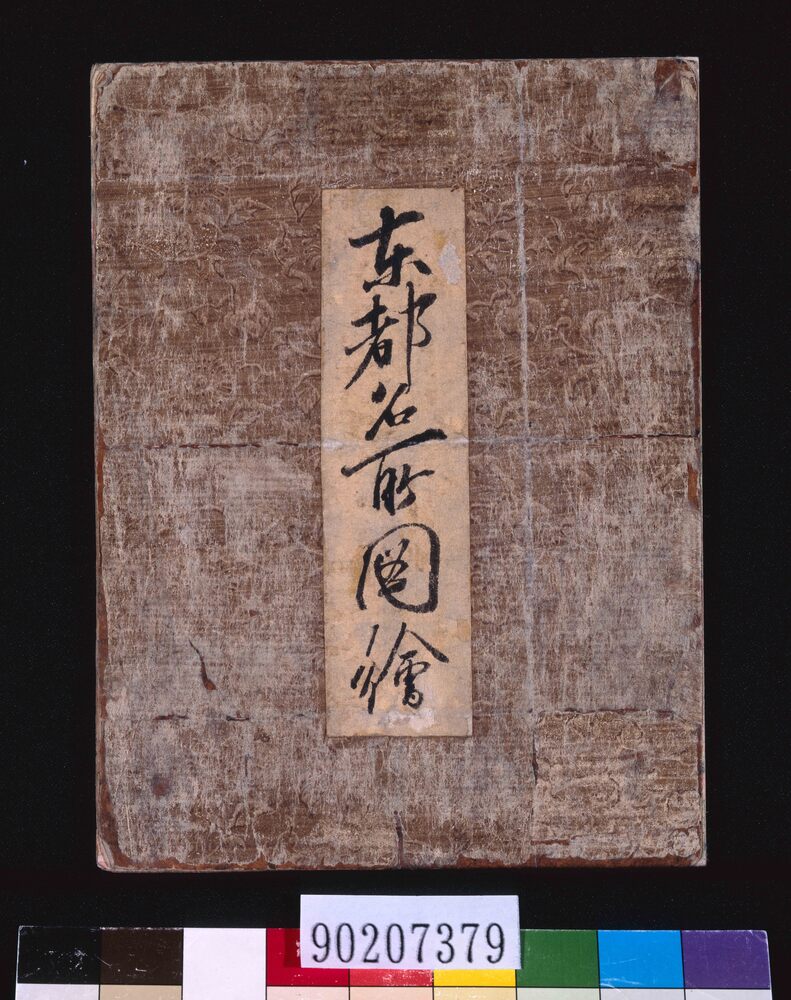 東都名所圖繪
90207379